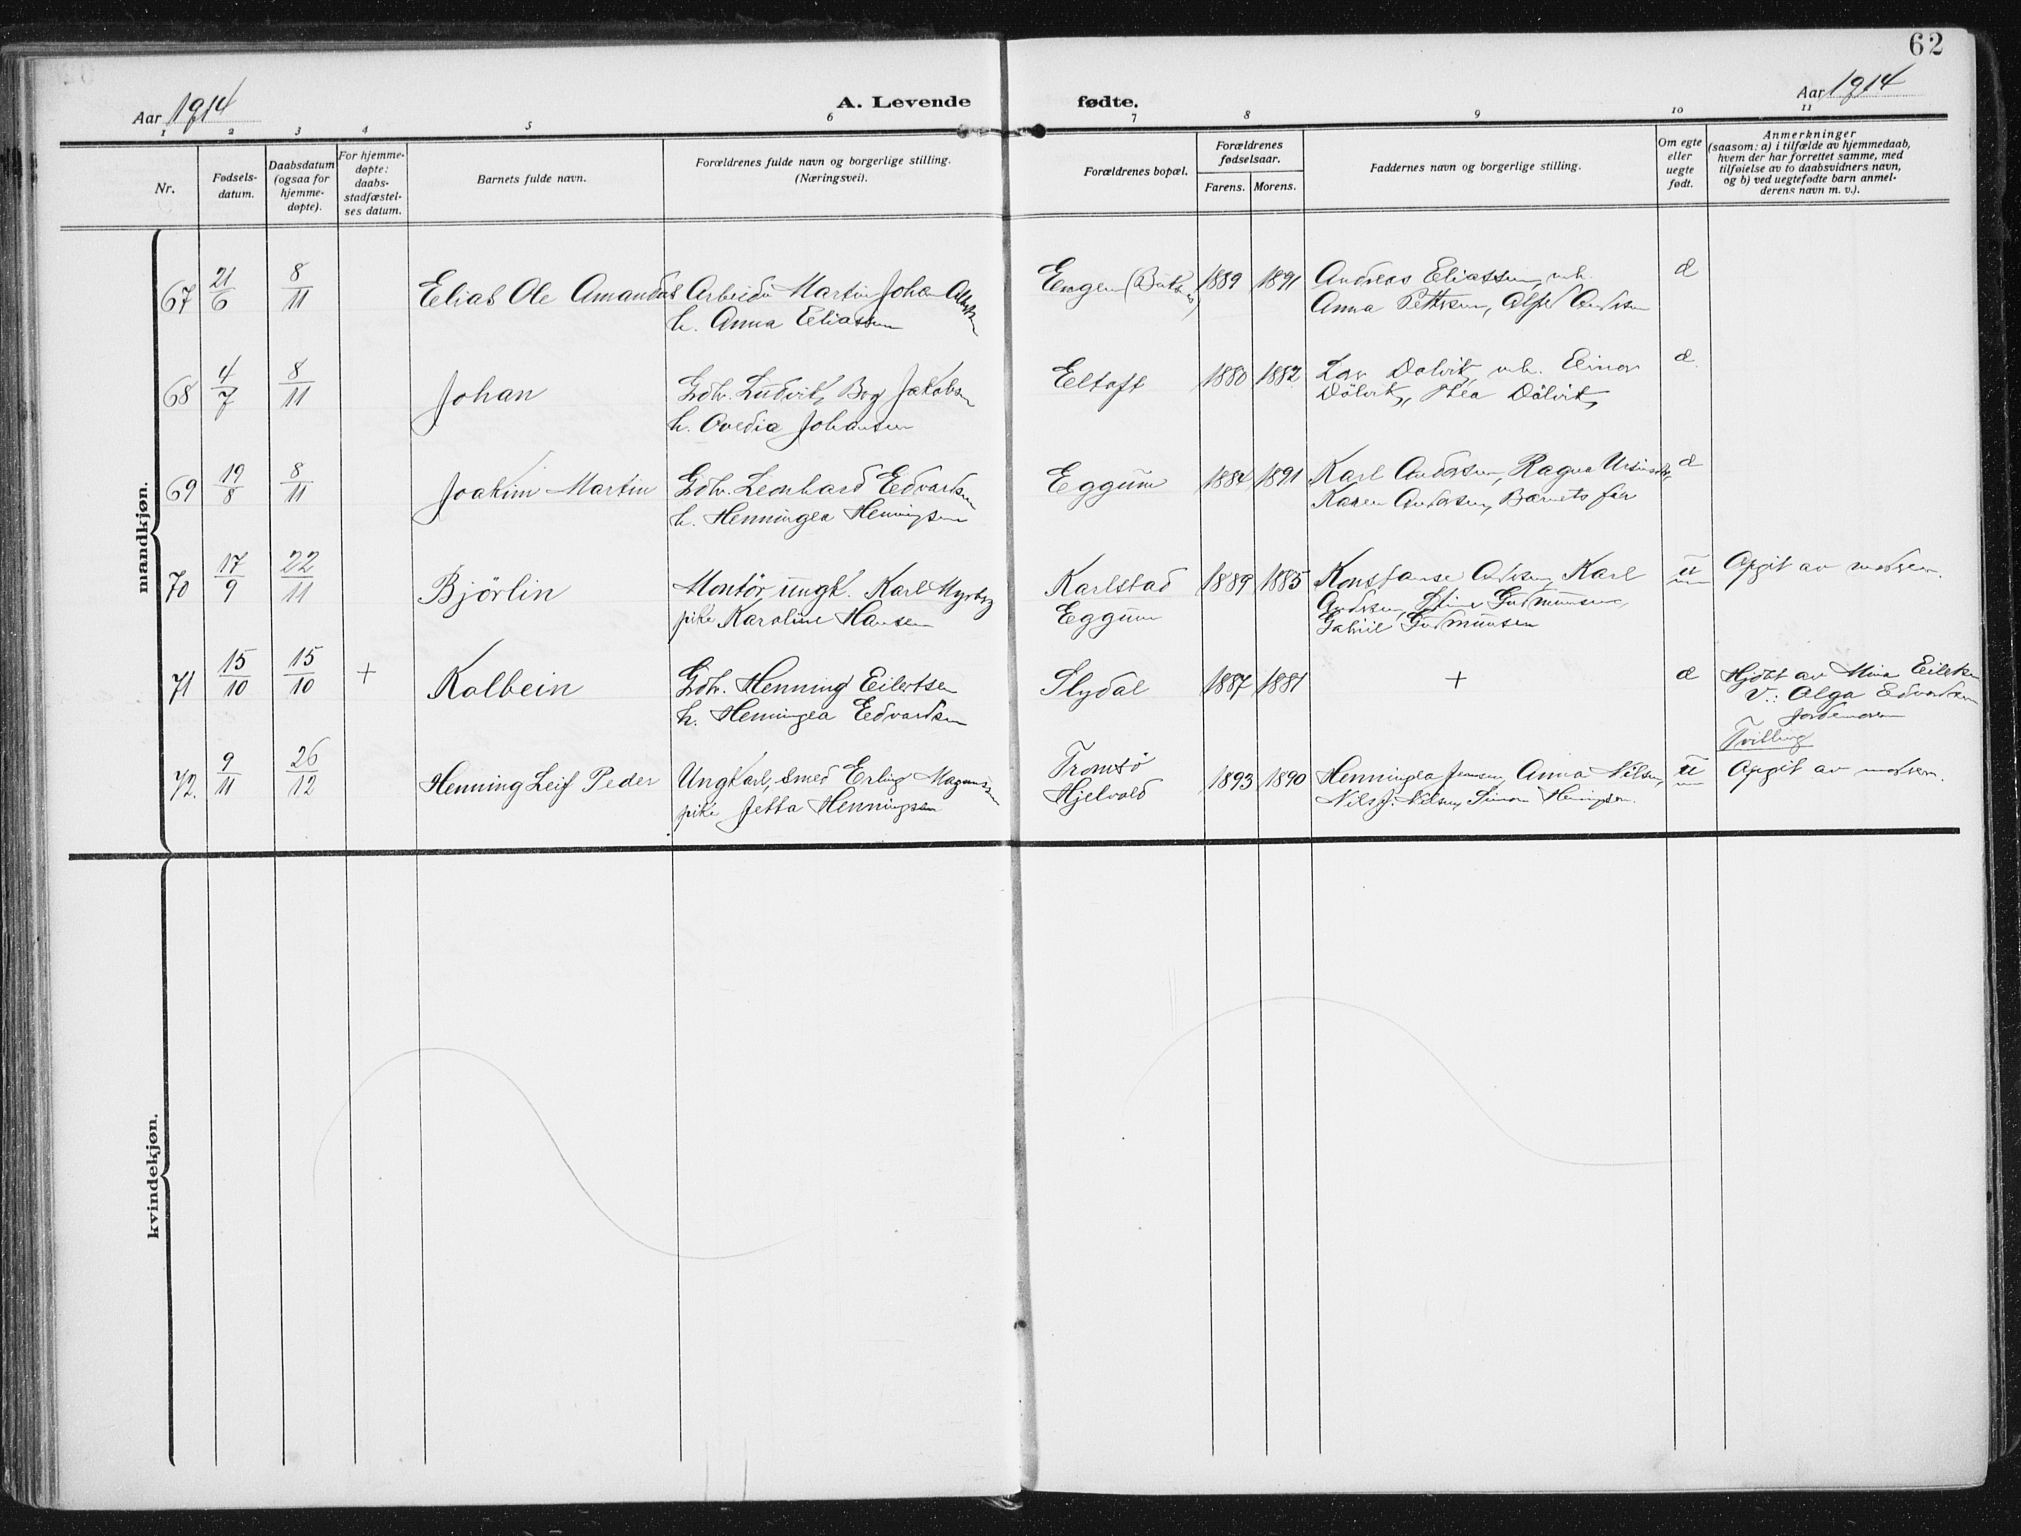 62
Aar 1914
A. Levende fødte.
Aar 1914
1 2 3 4 5 6 7 8 9 10 11
Nr.
Fødsels-
datum.
Daabsdatum
(ogsaa for
hjemme-
døpte).
For hjemme-
døpte:
daabs-
stadfæstel-
ses datum.
Barnets fulde navn.
Forældrenes fulde navn og borgerlige stilling.
(Næringsvei).
Forældrenes bopæl.
Forældrenes
fødselsaar.
Farens. Morens.
Faddernes navn og borgerlige stilling.
Om egte
eller
uegte
født.
Anmerkninger
(saasom: a) i tilfælde av hjemmedaab,
hvem der har forrettet samme, med
tilføielse av to daabsvidners navn,
og b) ved uegtefødte barn anmel-
derens navn m. v.).
mandkjøn.
67 21/6 8/11 Elias Ole Amandus Arbeider Martin Johan 1889 1891 Andreas Eliassen, u.h.
h. Anna Eliassen Anna Pettersen, Alfred Andersen
68 4/7 8/11 Johan Gdbr. Ludvik Bog Jakobsen Eltoft 1880 1882 Dalvik u.h. Einar
h. Ovedia Johansen Dölvik, Thea Dölvik
69 19/8 8/11 Joakim Martin Gdbr. Leonhard Edvardsen Eggum 1884 1891 Karl Andersen, Ragna
h. Henningea Henningsen Karen Andersen, Barnets far
70 17/9 22/11 Bjørlin Montör, ungk. Karl Myrberg Karlstad 1889 1885 Konstanse Andersen, Karl u Opgit av moderen.
pike Karoline Hansen Eggum Andersen, Stine Gudmundsen,
Gabriel Gudmundsen
71 15/10 15/10 + Kolbein Gdbr. Henning Eilertsen Slydal 1887 1881 + Hjdbt av Mina Eilertsen
h. Henningea Edvardsen V.: Olga Edvardsen
Jordemoren
Tvilling
72. 9/11 26/12 Henning Leif Peder Ungkarl, smed Erling Magnussen Tromsö 1893 1890 Henningea Jensen, Anna Nilsen, u Opgit av moderen.
pike Jetta Henningsen Hjelvold Nils J. Nilsen, Simon Henningsen.
kvindekjøn.